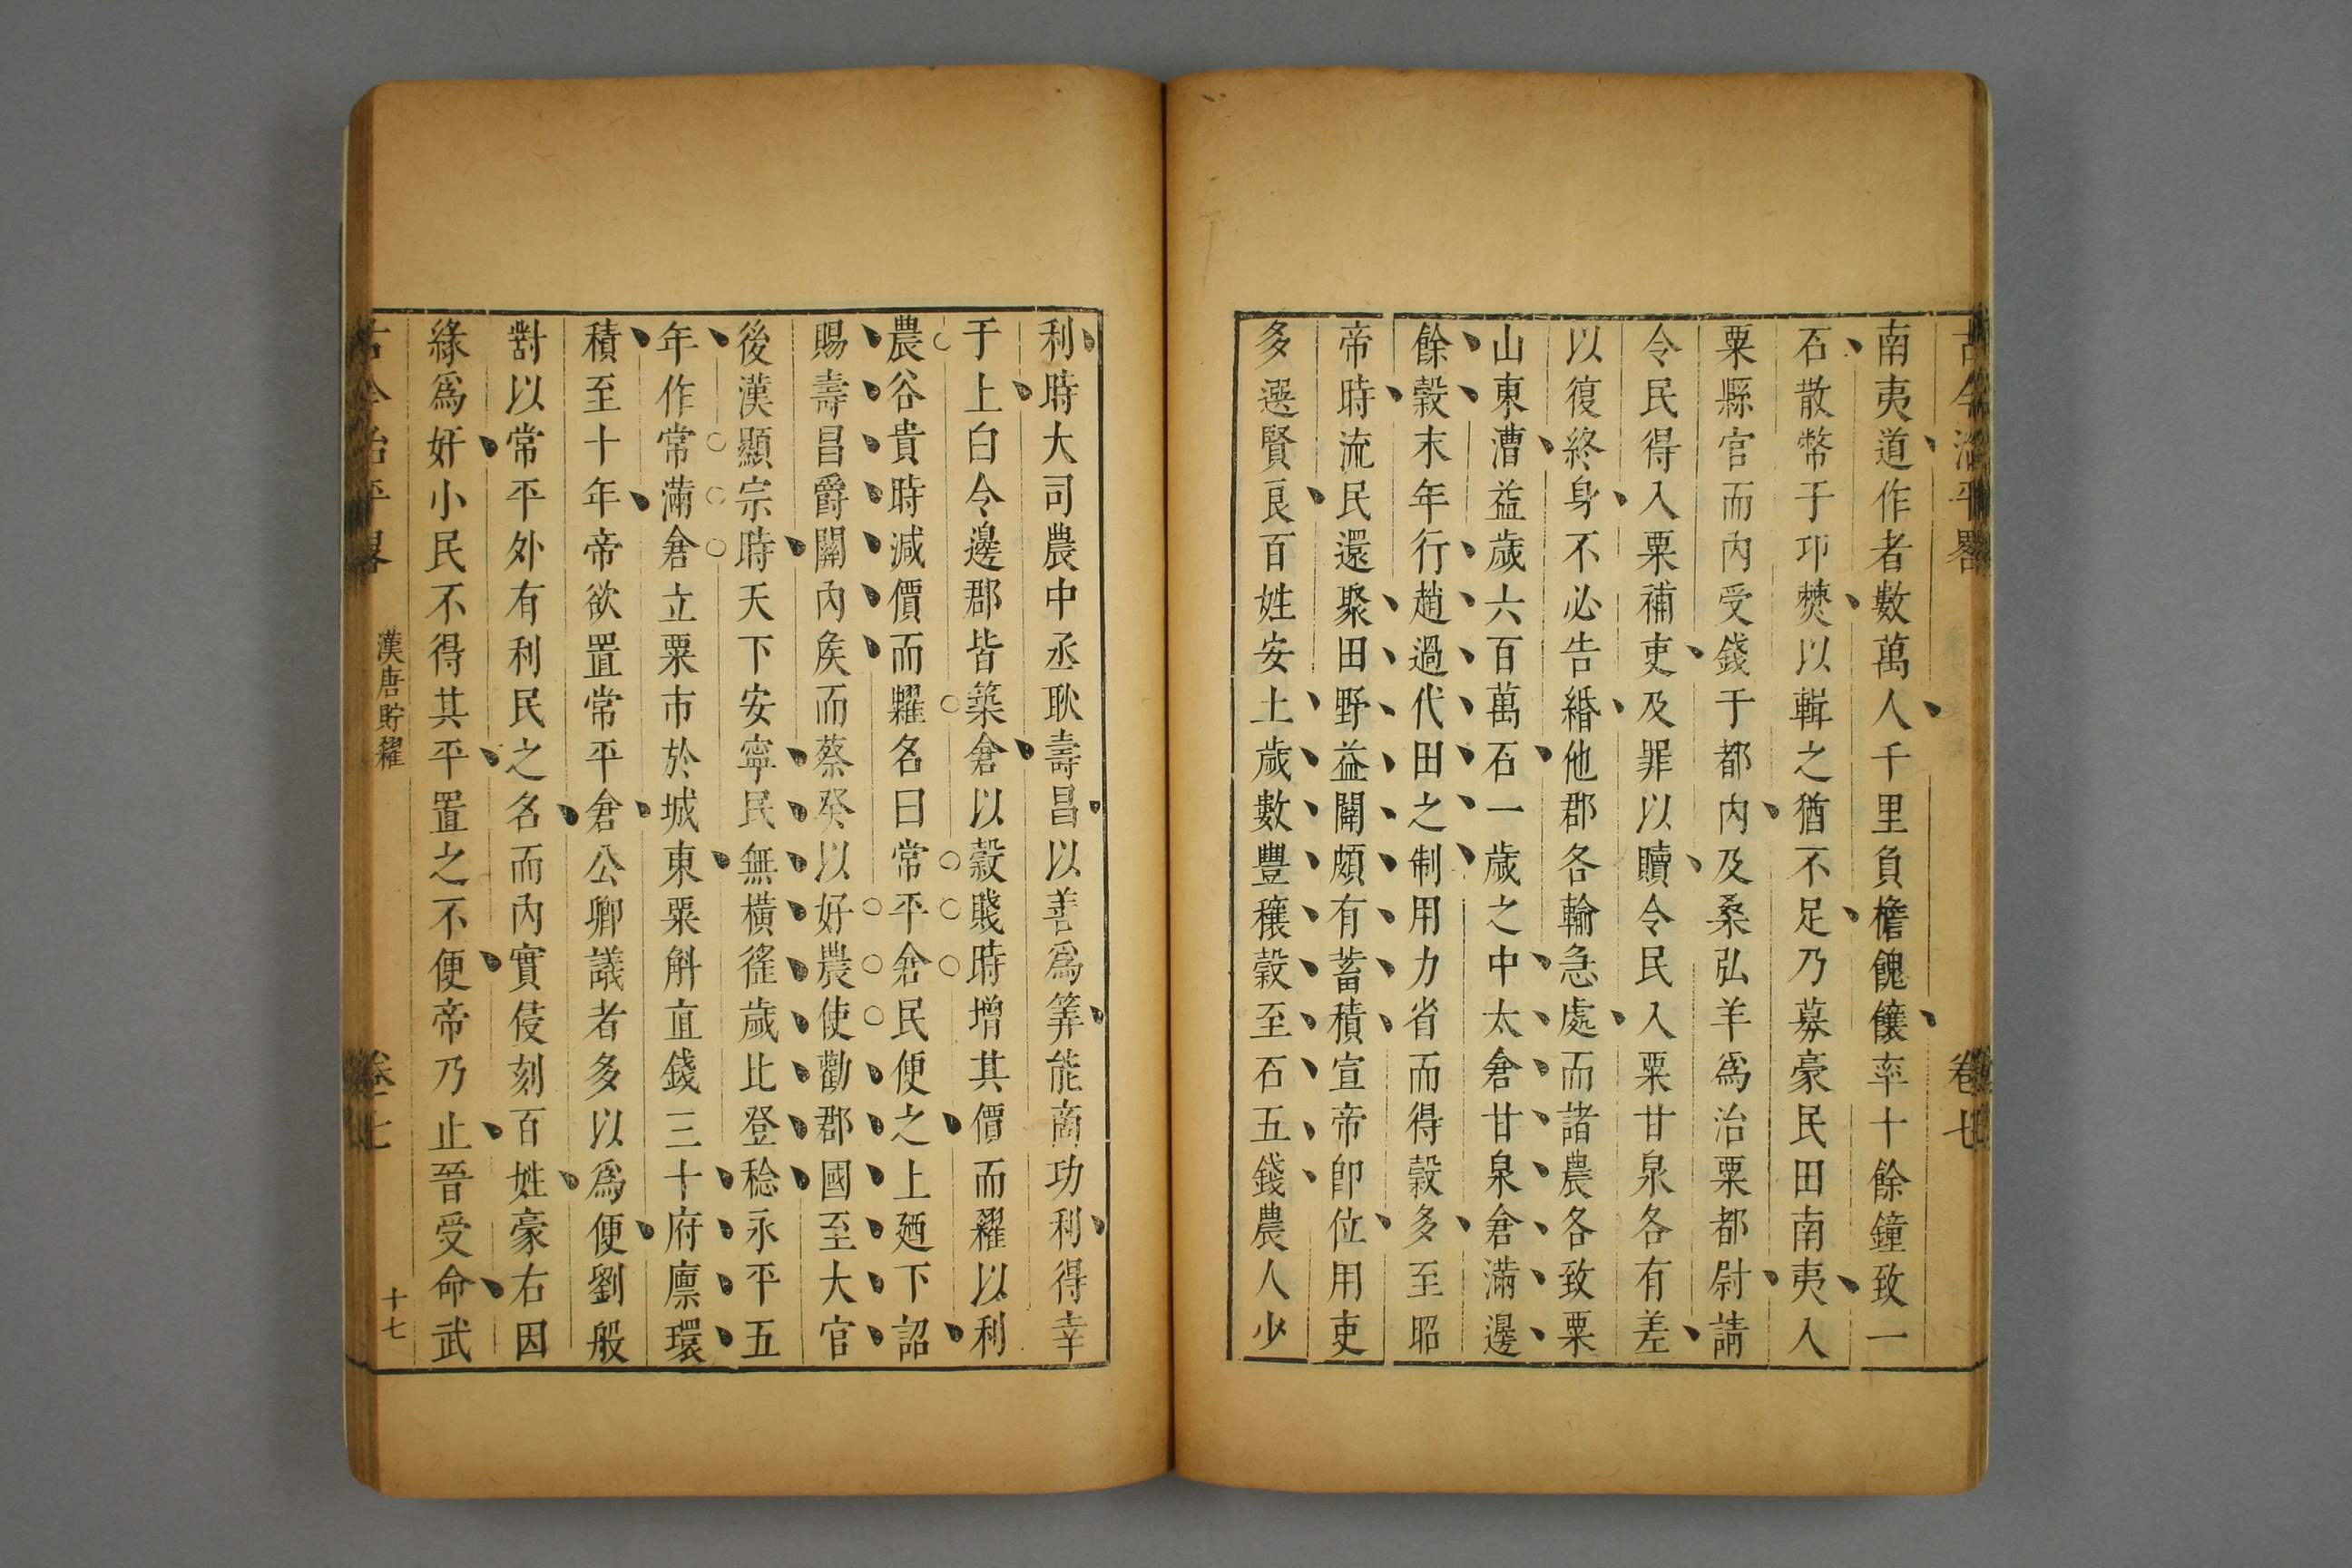 古今治平畧 卷七
南夷道作者數萬人千里負檐餽饟率十餘鐘致一
石散幣于卭僰以輯之猶不足乃募豪民田南夷入
粟縣官而內受錢于都內及桑弘羊爲治粟都尉請
令民得入粟補吏及罪以贖令民入粟甘泉各有差
以復終身不必告緡他郡各輸急處而諸農各致粟
山東漕益歲六百萬石一歲之中太倉甘泉倉滿邊
餘穀末年行趙過代田之制用力省而得穀多至昭
帝時流民還聚田野益闢頗有蓄積宣帝卽位用吏
多選賢良百姓安土歲數豐穰穀至石五錢農人少
利時大司農中丞耿壽昌以善爲筭能商功利得幸
于上白令邊郡皆築倉以穀賤時增其價而糴以利
農谷貴時減價而糶名曰常平倉民便之上廼下詔
賜壽昌爵關內矦而蔡癸以好農使勸郡國至大官
後漢顯宗時天下安寧民無橫徭歲比登稔永平五
年作常滿倉立粟市於城東粟斛直錢三十府廪環
積至十年帝欲置常平倉公卿議者多以爲便劉般
對以常平外有利民之名而內實侵刻百姓豪右因
緣爲奸小民不得其平置之不便帝乃止晉受命武
古今治平畧 漢唐貯糴 卷七 十七